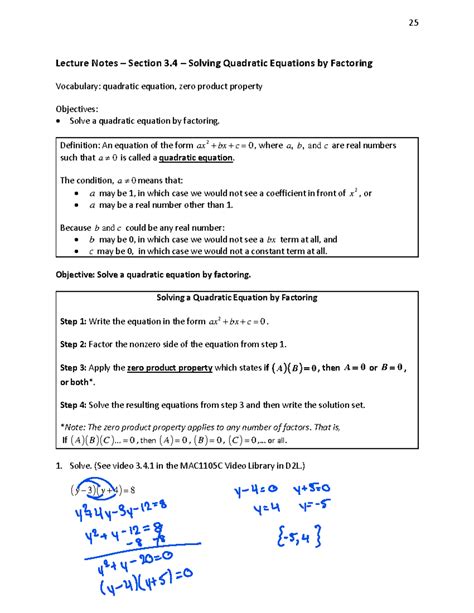 25
Lecture Notes – Section 3.4 – Solving Quadratic Equations by Factoring
Vocabulary: quadratic equation, zero product property
Objectives:
• Solve a quadratic equation by factoring.
Definition: An equation of the form ax² + bx + c = 0, where a, b, and c are real numbers
such that a ≠ 0 is called a quadratic equation.
The condition, a ≠ 0 means that:
• a may be 1, in which case we would not see a coefficient in front of x², or
• a may be a real number other than 1.
Because b and c could be any real number:
• b may be 0, in which case we would not see a bx term at all, and
• c may be 0, in which case we would not a constant term at all.
Objective: Solve a quadratic equation by factoring.
Solving a Quadratic Equation by Factoring
Step 1: Write the equation in the form ax² + bx + c = 0.
Step 2: Factor the nonzero side of the equation from step 1.
Step 3: Apply the zero product property which states if (A)(B) = 0, then A = 0 or B = 0,
or both*.
Step 4: Solve the resulting equations from step 3 and then write the solution set.
*Note: The zero product property applies to any number of factors. That is,
If (A)(B)(C)... = 0, then (A) = 0, (B) = 0, (C) = 0,... or all.
1. Solve. (See video 3.4.1 in the MAC1105C Video Library in D2L.)
(y − 3)(y + 4) = 8
y²+4y-3y-12=8
y²+y-12=8
-8 -8
y²+y-20=0
(y-4)(y+5)=0
y-4=0 y+5=0
y=4 y=-5
{-5,4}